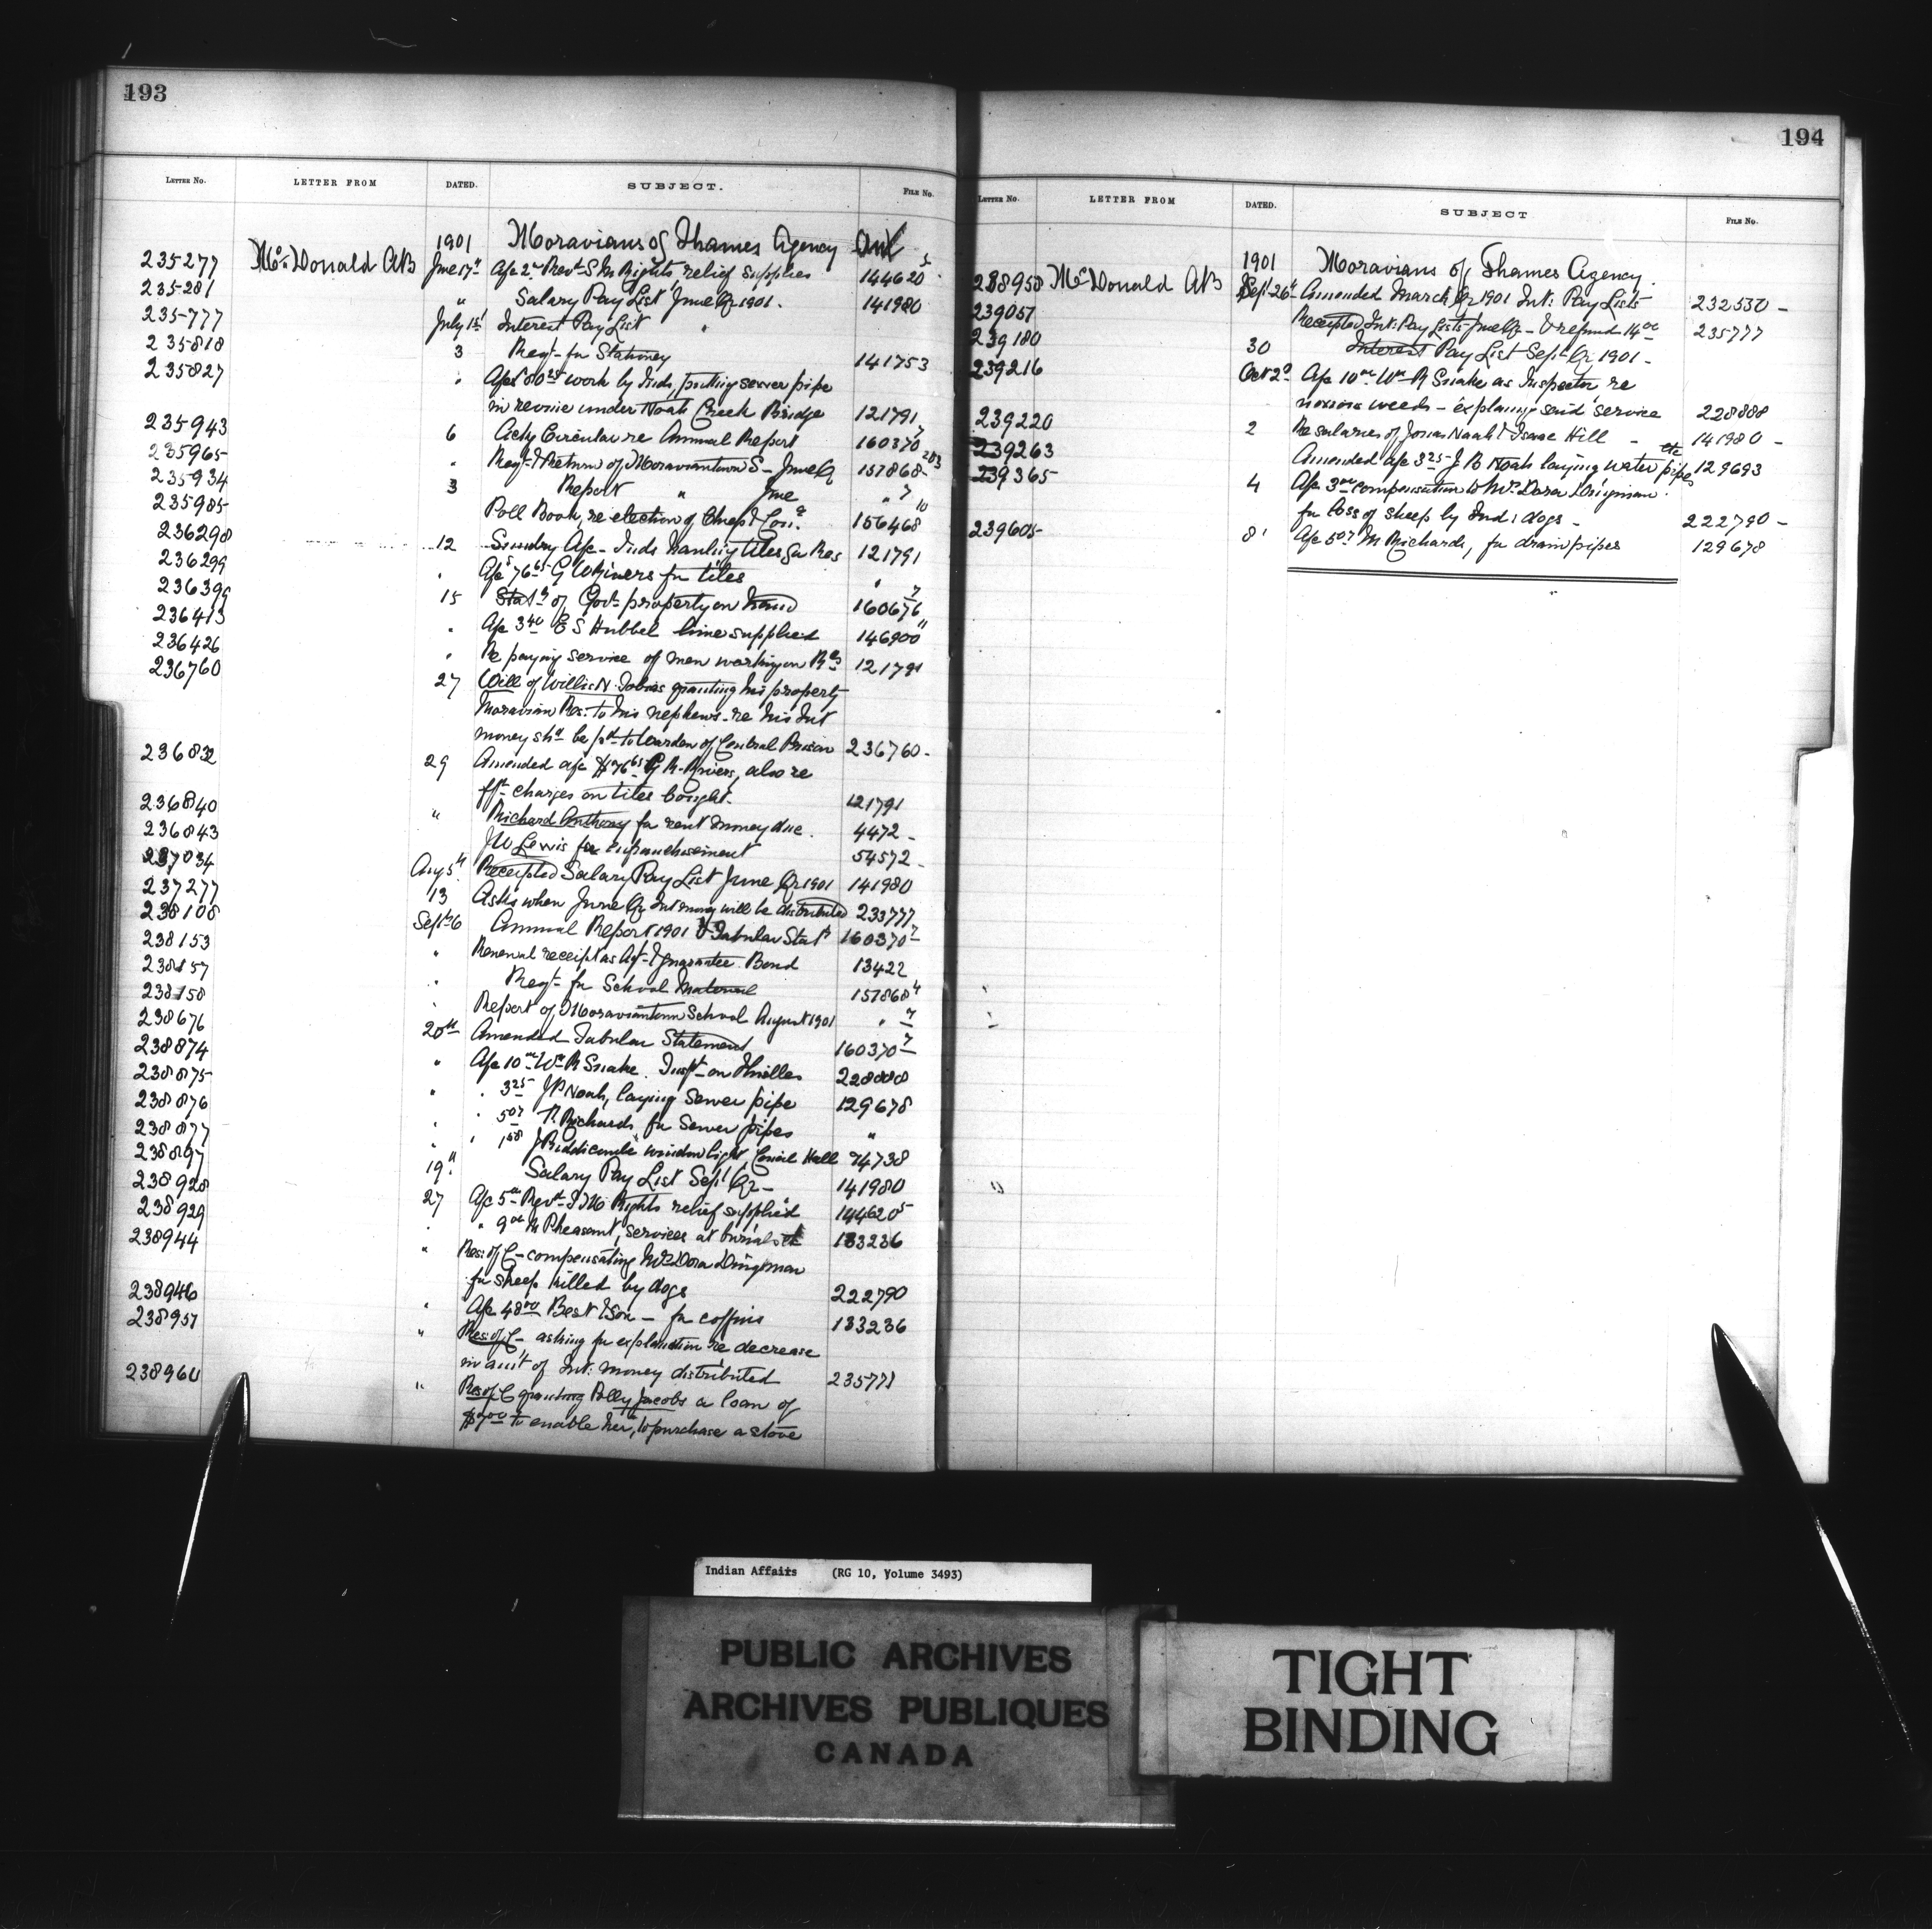 193
LETTER NO. LETTER FROM DATED. SUBJECT. FILE NO.
1901 Moravians of Thames Agency Ont
235277 McDonald AB June 17th Afc 2.00 Revd S M Rights, relief supplies 144620 5
235281 " Salary Pay List June Qr 1901. 141980
235777 July 1st Interest Pay List "
235818 3 Reqt- for Stationery 141753
235827 " Afcs 80 25 work by Inds, putting sewer pipe
in ravine under Noah Creek Bridge 121791
235943 6 Ackg Circular re Annual Report 160370 7
235965 " Reqt & Return of Moraviantown S- June Qr 157868 203
235934 3 Report " June " 7
235985 Poll Book, re election of Chiefs & Conr 156468 10
236298 12 Sundry Afc- Inds hauling tiles for Res 121791
236299 " Afc 76 65 G W for tiles "
236399 15 Statt of Govt property on hand 160676 7
236413 " Afc 3 40 E S Hubbel lime supplied 146900 11
236426 " Re paying service of men working on Rds 121791
236760 27 Will of Willis N. Tobias granting his property
Moravian Res: to his nephews - re his Int
money shd be pd to Warden of Central Prison 236760 -
236832 29 Amended afc $76 65 G R. Rivers, also re
fft charges on tiles bought. 121791
236840 " Richard Anthony for rent money due. 4472 -
236843 J W Lewis for enfranchisement 54572 -
237034 Aug 5th Receipted Salary Pay List June Qr 1901 141980
237277 13 Asks when June Qr Int money will be distributed 233777
238108 Sept 6 Annual Report 1901 & Tabular Statt 160370 7
238153 " Renewal receipt as Agt- & guarantee Bond 13422
238157 " Reqt- for School Material 157868 4
238158 " Report of Moraviantown School August 1901 " 7
238676 20th Amended Tabular Statement 160370 7
238874 " Afc 10.00 Wm R Snake. Inspt- on thistles 228888
238875 " " 3 25 J B Noah, laying Sewer pipe 129678
238876 " " 5 07 Richards for Sewer pipes "
238877 " " 1 58 J Biddicombe window light, Council Hall 74738
238897 19th Salary Pay List Sept Qr - 141980
238928 27 Afc 5.00 Revd S M Rights relief supplied 144620 5
238929 " " 9 00 M Pheasant, services at burials etc 133236
238944 " Res: of C - compensating Mrs Dora Dingman
for sheep killed by dogs 222790
238946 " Afc 48 00 Best & Son - for coffins 133236
238951 " Res: of C - asking for explanation re decrease
in amt of Int: money distributed 235777
238960 " Res of C granting Polly Jacobs a loan of
$7 00 to enable her, to purchase a stove
194
LETTER NO. LETTER FROM DATED. SUBJECT FILE NO.
1901 Moravians of Thames Agency
238958 McDonald AB Sept 26th Amended March Qr 1901 Int: Pay Lists 232530 -
239051 Receipted Int: Pay Lists June Qr - & refund 14 00 235777
239180 30 Interest Pay List Sept Qr 1901 -
239216 Oct 2d Afc 10 00 Wm R Snake as Inspector re
noxious weeds - explaining said service 228888
239220 2 Re salaries of Jonas Noah & Isaac Hill - 141980 -
239263 Amended afc 3 25 J B Noah laying water pipes etc 129693
239365 4 Afc 3 00 compensation to Mrs Dora Dingman
for loss of sheep by Ind: dogs - 222790 -
239605 8 Afc 5 07 M Richards, for drain pipes 129678
Indian Affairs (RG 10, Volume 3493)
PUBLIC ARCHIVES
ARCHIVES PUBLIQUES
CANADA
TIGHT
BINDING